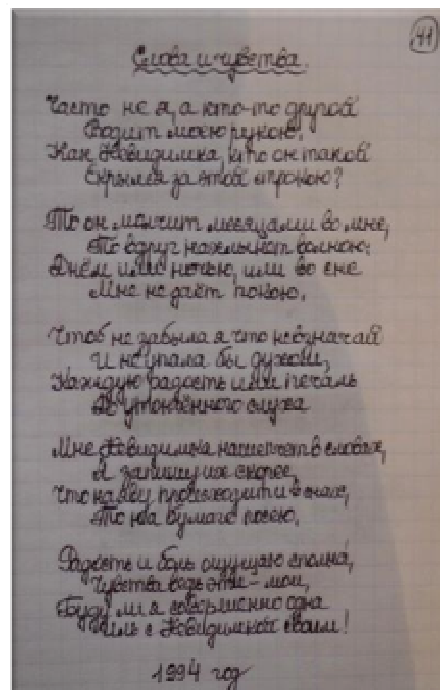 41
Слова и чувства.
Часто не я, а кто-то другой
Водит моею рукою.
Как Невидимка, кто он такой
Скрылся за этой строкою?
То он молчит месяцами во мне,
То вдруг нахлынет волною:
Днём или ночью, или во сне
Мне не даёт покою.
Чтоб не забыла я что невзначай
И не упала бы духом,
Каждую радость или печаль
До утончённого слуха
Мне Невидимка нашепчет в словах,
Я запишу их скорее,
Что наяву происходит и в снах,
То на бумаге посею.
Радость и боль ощущаю сполна,
Чувства ведь эти - мои,
Буду ли я совершенно одна
Иль с Невидимкой своим!
1994 год